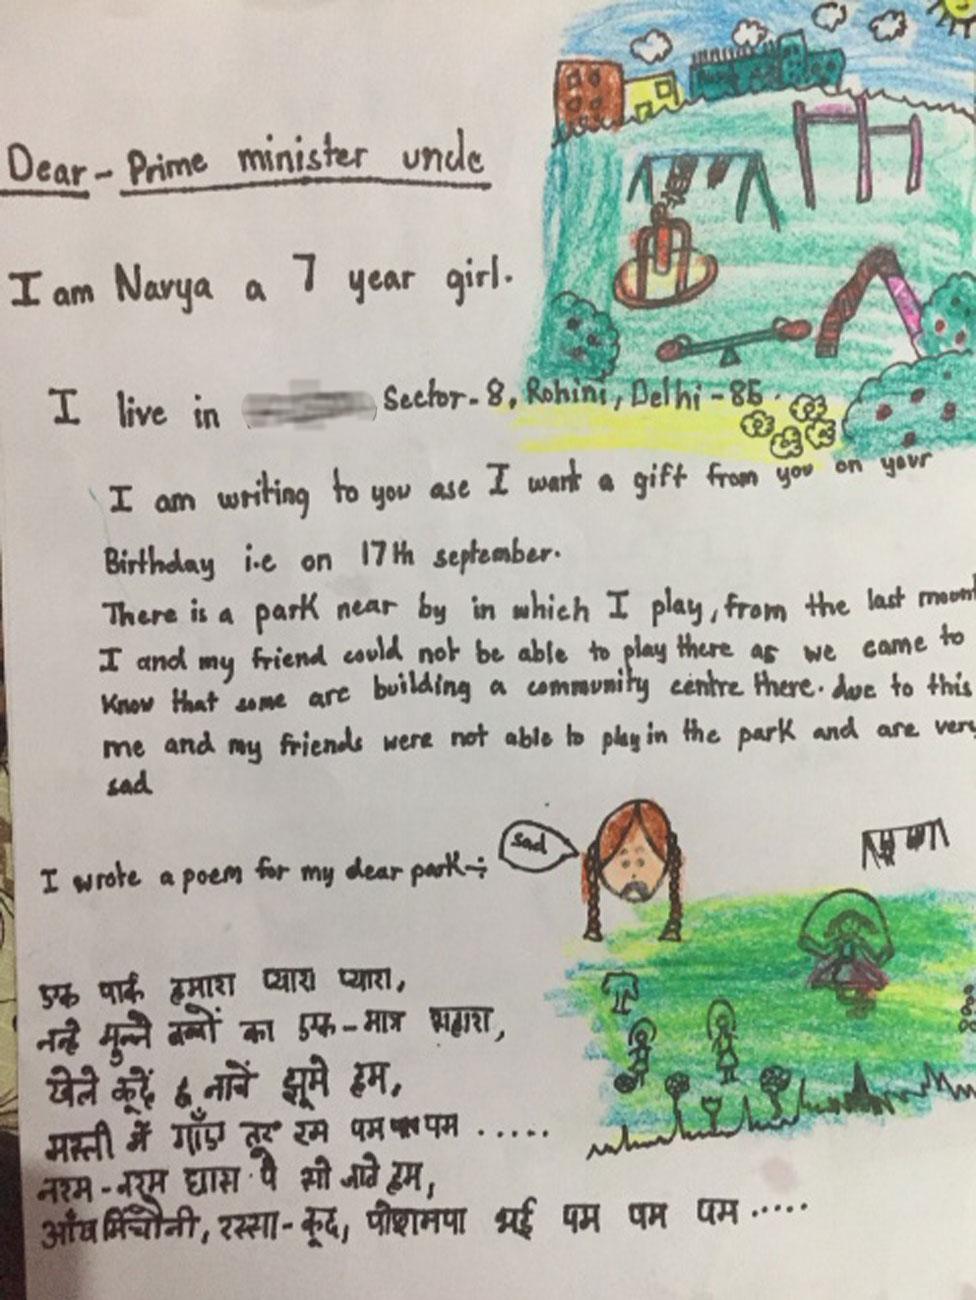 Dear - Prime minister uncle
I am Navya a 7 year girl.
I live in Sector - 8, Rohini, Delhi - 85.
I am writing to you ase I want a gift from you on your
Birthday i.e on 17th september.
There is a park near by in which I play, from the last mont
I and my friend could not be able to play there as we came to
Know that some are building a community centre there. due to this
me and my friends were not able to play in the park and are very
sad
sad
I wrote a poem for my dear park :-
एक पार्क हमारा प्यारा प्यारा,
नन्हे मुन्ने बच्चों का एक-मात्र सहारा,
खेले कूदें नाचें झूमे हम,
मस्ती में गाँए रम पम पम .....
नरम-नरम घास पे सो जावे हम,
आँख मिचौनी, रस्सा-कूद, पोशमपा भई पम पम पम .....